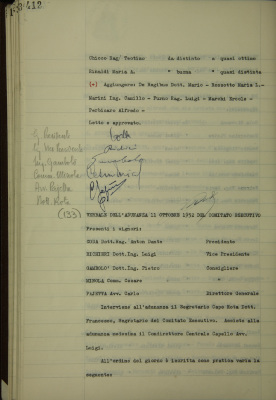 Chicco Rag/ Teotino da distinto a quasi ottimo
Rinaldi Maria A. " buona " quasi distinta
(-) Aggiungere: De Regibus Dott. Mario - Zennette Maria L.-
Marini Ing. Camillo - Fusco Rag. Luigi - Marchi Ercole -
Pertinace Alfredo -
Letto e approvato.
Il Presidente
Il Vice Presidente
Ing. Gambolò
Avv. Pajetta
Dott. Nota
(133)
VERBALE DELL'ADUNANZA 11 OTTOBRE 1932 DEL COMITATO ESECUTIVO
Presenti i signori:
Dott.Ing. Eaton Dante Presidente
Dott.Ing. Luigi " Vice Presidente
GAMBOLO' Dott.Ing. Pietro " Consigliere
MEROLA Comm. Cesare " "
PAJETTA Avv. Carlo Direttore Generale
Interviene all'adunanza il Segretario Capo Nota Dott.
Francesco, Segretario del Comitato Esecutivo. Assiste alla
adunanza medesima il Condirettore Centrale Capello Avv.
Luigi.
All'ordine del giorno è iscritta come pratica unica la
seguente: